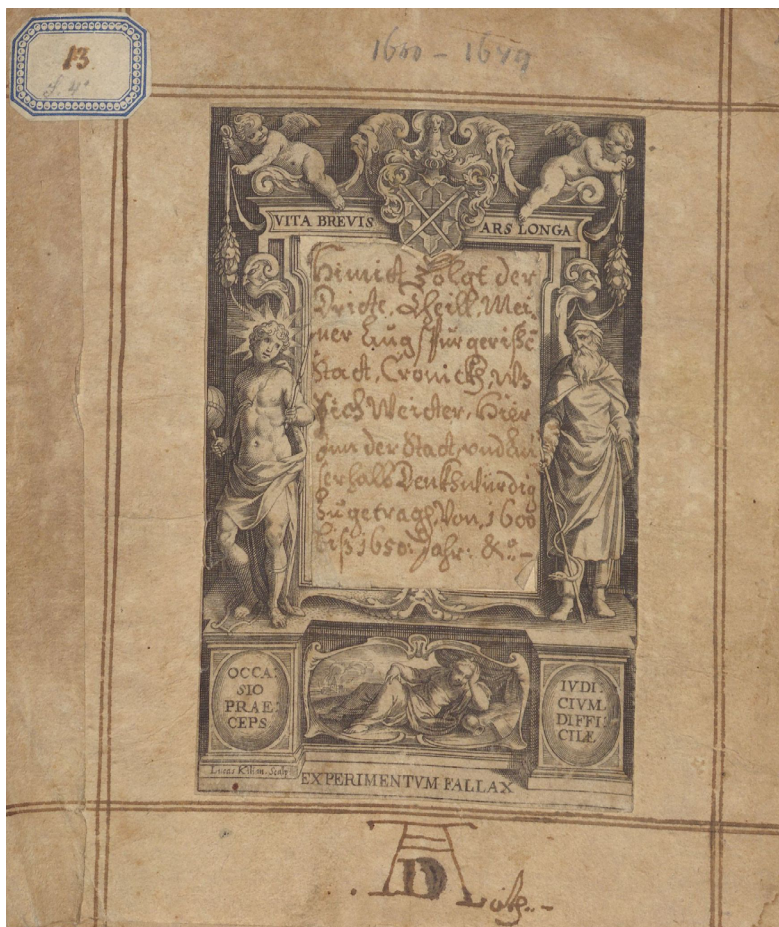 13
1600 - 1649
VITA BREVIS
ARS LONGA
Himit Folgt der
Dricte, Theill, Mei-
ner Augspurgerische
Stadt, Cronickh, Ws
sich Weicter, Hier
Inn der Stadt, und Au
serhalb Denkhwürdig
Zu getragh, Von, 1600
biß 1650: Jahr: &c: -
OCCA:
SIO
PRAE:
CEPS
IVDI:
CIVM.
DIFFI:
CILÆ
Lucas Kilian. Sculp
EXPERIMENTVM FALLAX
AD